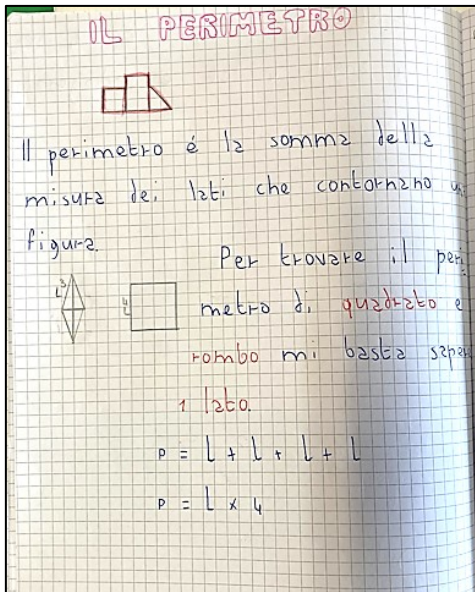 IL PERIMETRO
Il perimetro é la somma della
misura dei lati che contornano
figura.
Per trovare il peri
metro di quadrato e
rombo mi basta saper
1 lato.
P = l + l + l + l
P = l × 4